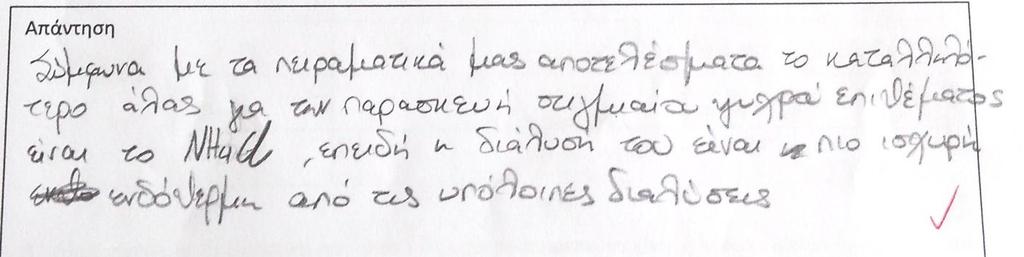 Απάντηση
Σύμφωνα με τα πειραματικά μας αποτελέσματα το καταλληλό-
τερο άλας για την παρασκευή στιγμιαία ψυχρά επιθέματος
είναι το , επειδή η διάλυσή του είναι πιο ισχυρή
ενδόθερμη από τις υπόλοιπες διαλύσεις